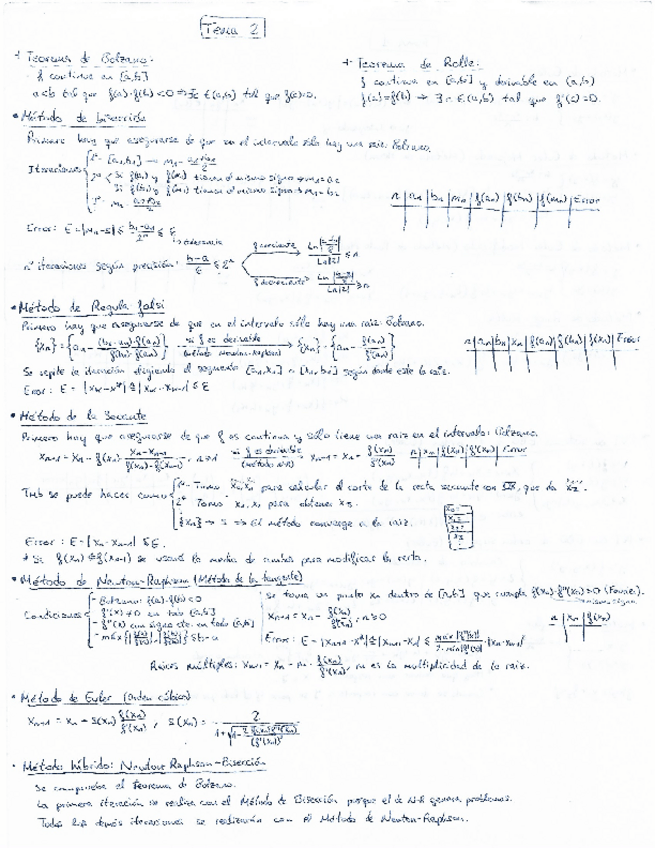 Tema 2
+ Teorema de Bolzano:
f continua en [a,b]
a<b tal que f(a)·f(b) < 0 ⇒ ∃c ∈(a,b) tal que f(c)=0.
+ Teorema de Rolle:
f continua en [a,b] y derivable en (a,b)
f(a)=f(b) → ∃c∈(a,b) tal que f'(c)=0.
• Método de bisección
Primero hay que asegurarse de que en el intervalo sólo hay una raíz: Bolzano.
Iteraciones
Si f(a1) y f(m1) tienen el mismo signo → m1 = a2
Si f(b1) y f(m1) tienen el mismo signo → m1 = b2
n | an | bn | mn | f(an) | f(bn) | f(mn) | Error
Error: E = |mn - s| ≤ ≤ ε
tolerancia
nº iteraciones según precisión: ≤ 2^n
f creciente
f decreciente
• Método de Regula falsi
Primero hay que asegurarse de que en el intervalo sólo hay una raíz: Bolzano.
si f es derivable
(método Newton-Raphson)
n | an | bn | xn | f(an) | f(bn) | f(xn) | Error
Se repite la iteración eligiendo el segmento según donde esté la raíz.
Error:
• Método de la Secante
Primero hay que asegurarse de que f es continua y sólo tiene una raíz en el intervalo: Bolzano.
si f es derivable
(método N-R)
Tmb se puede hacer como
1º Tomo para calcular el corte de la recta secante con que da x2.
2º Tomo x1, x2 para obtener x3.
{xn} → s ⇒ El método converge a la raíz.
Error: E = |xn - xn-1| ≤ ε.
* Si se usará la media de ambas para modificar la recta.
• Método de Newton-Raphson (Método de la tangente)
Condiciones
- Bolzano: f(a)·f(b)<0
- f'(x) ≠ 0 en todo [a,b]
- f''(x) con signo cte. en todo [a,b]
Se toma un punto x0 dentro de [a,b] que cumpla f(x0)·f''(x0)>0 (Fourier).
mismo signo
xn+1 = xn - f(xn)/f'(xn), n≥0
n | xn | f(xn)
Error:
Raíces múltiples: xn+1 = xn - m · f(xn)/f'(xn), m es la multiplicidad de la raíz.
• Método de Euler (Orden cúbico)
xn+1 = xn - S(xn) f(xn)/f'(xn), S(xn) =
• Método híbrido: Newton Raphson-Bisección
Se comprueba el Teorema de Bolzano.
La primera iteración se realiza con el Método de Bisección porque el de N-R genera problemas.
Todas las demás iteraciones se realizarán con el Método de Newton-Raphson.